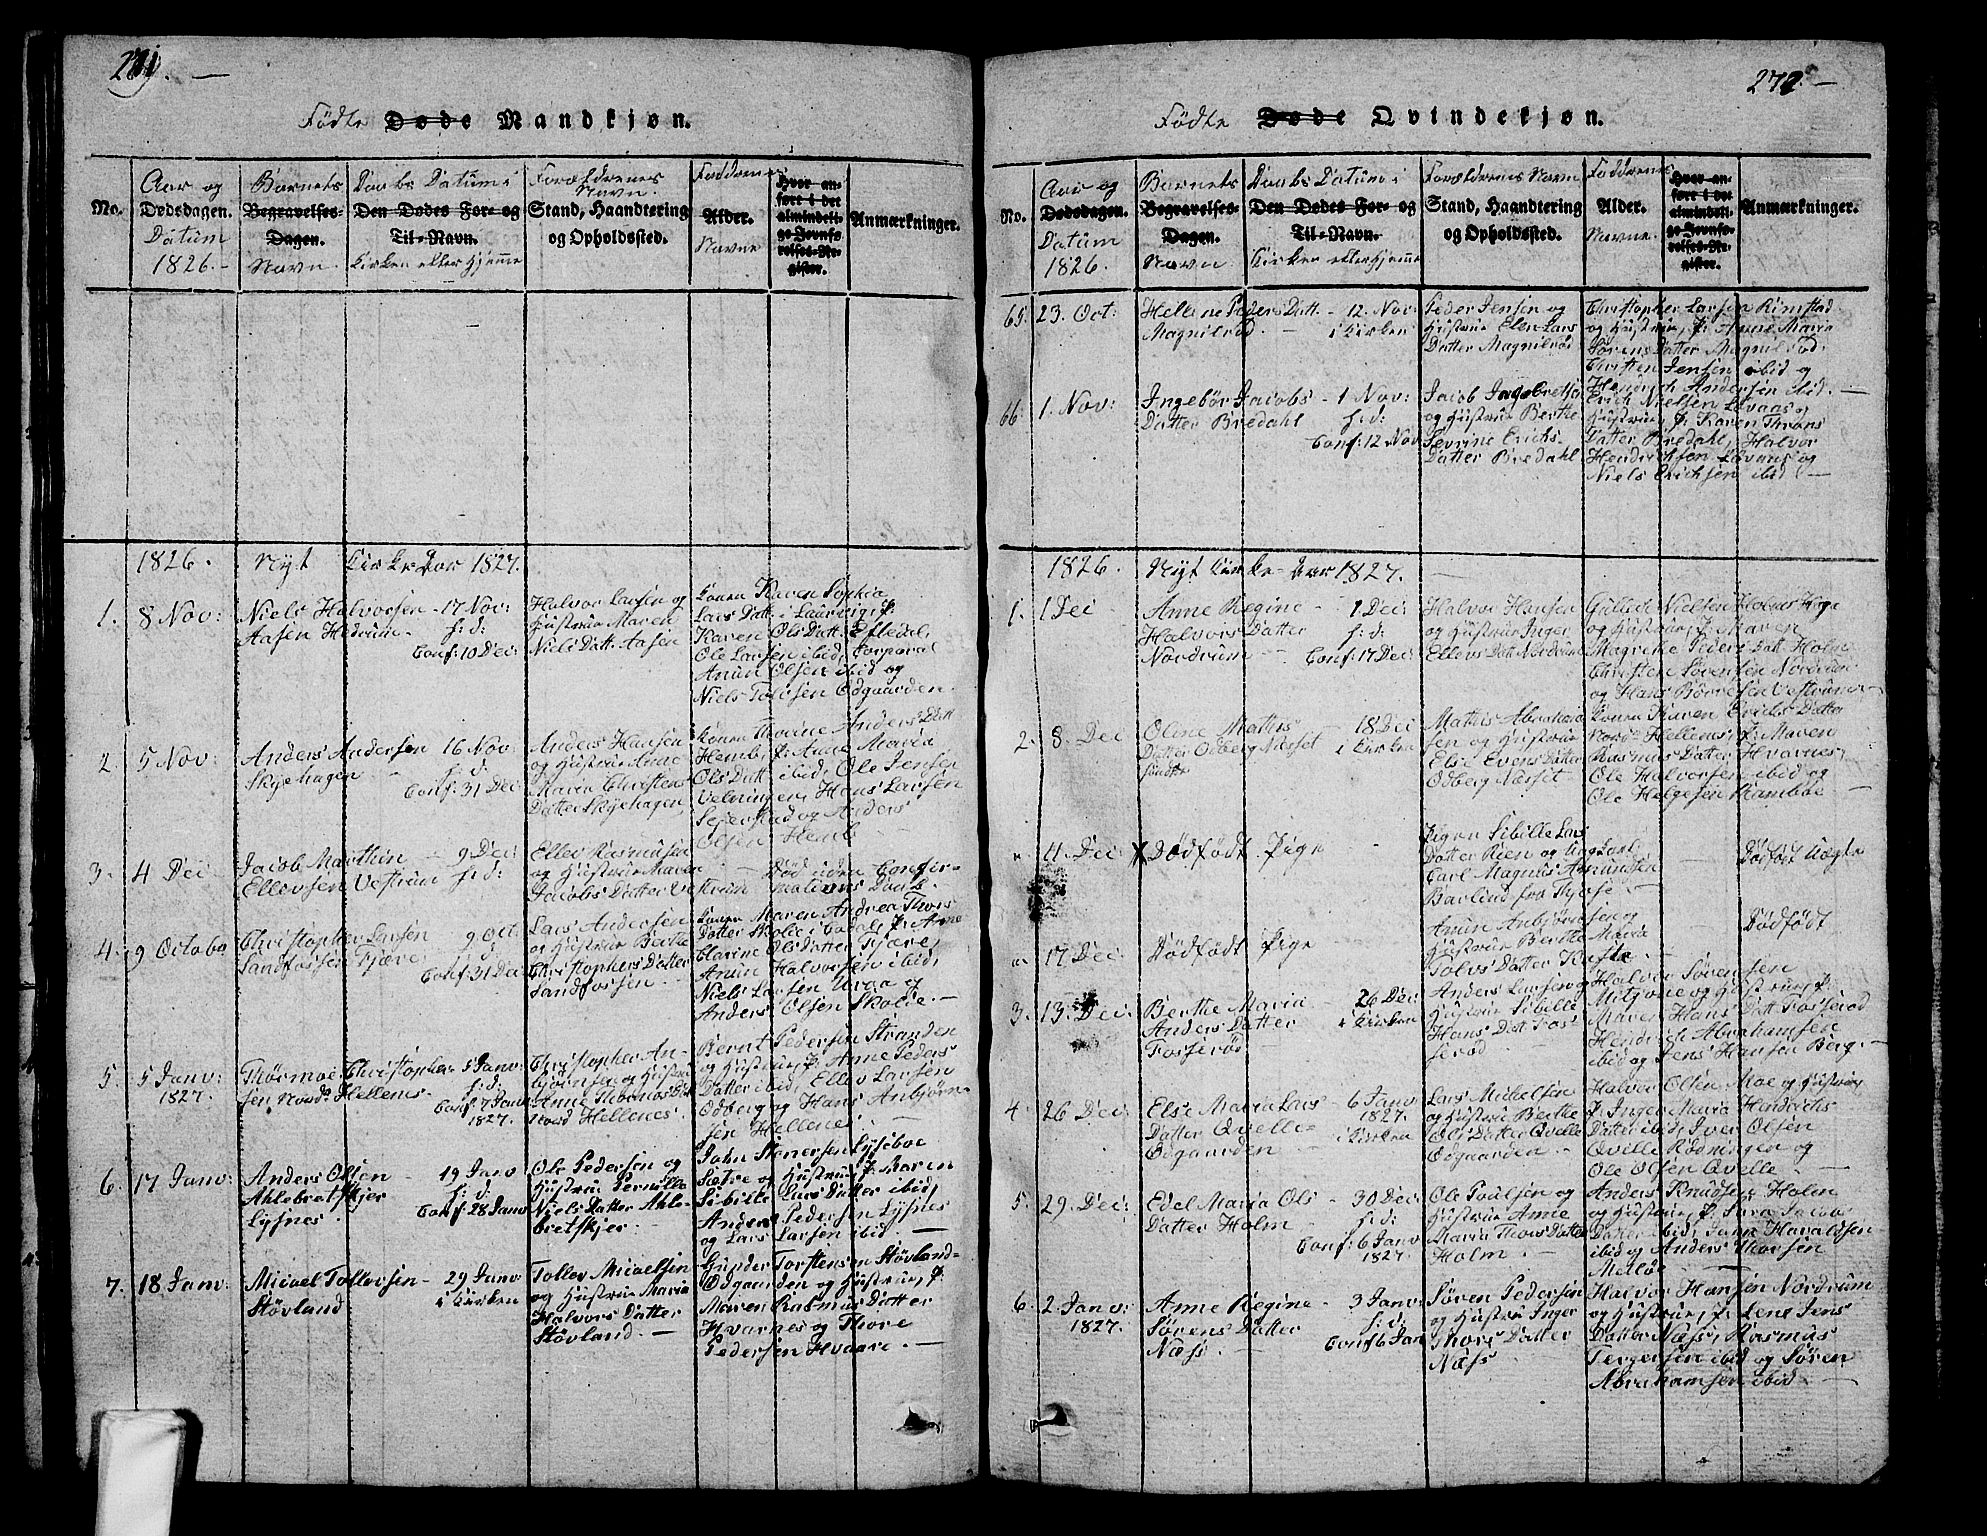 271. —
Fødte Døde Mandkjøn.
No.
Aar og
Dødsdagen.
Datum
1826. -
Barnets
Begravelses-
Dagen.
Navn.
Daabs Datum i
Den Dødes For- og
Til-Navn.
Kirken eller Hjemme
Forældrenes
Navn.
Stand, Haandtering
og Opholdssted.
Faddernes
Alder.
Navne
Hvor an-
ført i det
almindeli-
ge Jevnfø-
relses-Re-
gister.
Anmærkninger.
1826. Nyt Kirke Aar 1827.
1. 8 Nov:
Niels Halvorsen
Aasen Hedrum -
17 Nov:
h: d:
Conf: 10 Dec:
Halvor Larsen og
Hustrue Maren
Niels Datt. Aasen
Konen Karen Sophia
Lars Datt. i Laurvig, P:
Karen Ols Datt. Eftedal,
Ole Larsen ibid, Corporal
Anun Olsen ibid og
Niels Tolfsen Odgaarden.
2. 5 Nov:
Anders Andersen
Skjehagen -
16 Nov
h: d:
Conf: 31 Dec:
Anders Hansen
og Hustrue Anne
Maria Christens
Datter Skjehagen,
Konen Thorine Anders Datt
Hemb, P: Anne Maria
Ols Datt. ibid, Ole Jensen
Velninger, Hans Larsen
Sejerstad og Anders
Olsen Hemb -
3. 4 Dec
Jacob Marthin
Ellevsen Vestrum
9 Dec:
h: d:
Ellev Rasmusen
og Hustrue Maren
Jacobs Datter Vestrum
Død uden Confir-
mations Daab.
4. 9 October
Christopher Larsen
Sandfossen Kjære
9 Oct.
h: d:
Conf 31 Dec:
Lars Andersen
og Hustrue Berthe
Christophers Datter
Sandfossen. -
Konen Maren Andrea Thors
Datter Skolie i Lardal, P: Anne
Clarine Ols Datter Kjære,
Anun Halvorsen ibid,
Niels Larsen Uraa og
Anders Olsen Skolie. -
5. 5 Janv:
1827.
Thormoe Christopher-
sen Nord Hellenes -
5 Janv:
h: d:
Conf 7 Janv
1827.
Christopher An-
bjørnsen og Hustrue
Anne Thormos Datt
Nord Hellenes -
Bernt Pedersen Stranden
og Hustrue, P: Anne Peders
Datter ibid, Ellev Larsen
Odberg og Hans Anbjørn-
sen Hellene -
6. 17 Janv:
Anders Olsen
Ahlebretskjer
Lysnes.
19 Janv
h: d:
Conf: 28 Janv
Ole Pedersen og
Hustrue Pernille
Niels Datter Ahle-
bretskjer -
John Stenersen Lyseboe
Sætre og Hustrue, P: Maren
Sibille Lars Datter ibid,
Anders Pedersen Lysnes
og Lars Larsen ibid. -
7. 18 Janv:
Micael Tollevsen -
Støvland
29 Janv
i Kirken
Tollev Micaelsen
og Hustrue Maria
Halvors Datter
Støvland. -
Gunder Torstensen Støvland-
Odgaarden og Hustrue, P:
Maren Rasmus Datter
Hvarnes og Thore
Pedersen Hvaare. -
272. —
Fødte Døde Qvindekjøn.
No.
Aar og
Dødsdagen.
Datum
1826.
Barnets
Begravelses-
Dagen.
Navn
Daabs Datum i
Den Dødes For- og
Til-Navn.
Kirken eller Hjemme
Forældrenes Navn
Stand, Haandtering
og Opholdssted.
Faddernes
Alder.
Navne
Hvor an-
ført i det
almindeli-
ge Jevnfø-
relses-Re-
gister.
Anmærkninger.
65. 23. Oct:
Hellene Peders Datt. -
Magnilrød. -
12. Nov
i Kirken
Peder Jensen og
Hustrue Ellen Lars
Datter Magnilrød
Christopher Larsen Rimstad
og Hustrue, P: Anne Maria
Sørens Datter Magnilrød,
Christen Jensen ibid og
Hendrich Andersen ibid. -
66. 1. Nov:
Ingebør Jacobs
Datter Bredahl
1 Nov:
h: d:
Conf: 12 Nov
Jacob Ingebretsen
og Hustrue Berthe
Sevrine Erichs-
Datter Bredahl
Erich Nielsen Løvaas og
Hustrue, P: Karen Throns
Datter Bredahl, Halvor
Hendrichsen Løvaas og
Niels Erichsen ibid -
1826. Nyt Kirke- Aar 1827. -
1. 1 Dec
Anne Regine -
Halvors Datter
Nordrum -
1 Dec:
h: d:
Conf: 17 Dec:
Halvor Hansen
og Hustrue Inger
Ellevs Datt Nordrum
Gullede Nielsen Holmes Hage
og Hustrue, P: Karen
Magrethe Peders Datt Holm
Christen Sørensen Nordrum
og Hans Børresen Vestrum -
2. 8. Dec
Oline Mathis
Datter Odberg Næsset
18 Dec
i Kirken
Mathis Abraham-
sen og Hustrue
Else Evens Datter
Odberg Næsset
Konen Karen Erichs Datter
Nord Hellenes, P: Maren
Rasmus Datter Hvarnes,
Ole Halvorsen ibid og
Ole Helgesen Ramboe -
11. Dec
Dødfødt Pige -
Pigen Sibille Lars
Datter Rien og Ungkarl
Carl Magnus Amundsen
Barlind fra Thjøse -
Dødfødt Uægte
17 Dec:
Dødfødt Pige -
Anun Anbjørnsen og
Hustrue Berthe Maria
Tolvs Datter
Dødfødt
3. 13. Dec:
Berthe Maria -
Anders Datter
Fosserød
26 Dec:
i Kirken
Anders Larsen og
Hustrue Sibille
Hans Datt Fos-
serød -
Halvor Sørensen
og Hustrue, P:
Maren Hans Datt Fosserød
Hendrich Abrahamsen
ibid og Jens Hansen Berg. -
4. 26 Dec:
Else Maria Lars -
Datter Qvelle-
Odgaarden -
6 Janv
1827.
i Kirken
Lars Michelsen
og Hustrue Berthe
Ols Datter Qvelle
Odgaarden -
Halvor Olsen Moe og Hustrue
P: Inger Maria Hendrichs
Datter ibid, Iver Olsen
Qvelle Rødningen og
Ole Olsen Qvelle. -
5. 29. Dec:
Edel Maria Ols -
Datter Holm -
30 Dec:
h: d:
Conf: 6 Janv
1827.
Ole Poulsen og
Hustrue Anne
Maria Thors Datter
Holm. -
Anders Knudsen Holm
og Hustrue, P: Sara Jacobs
Datter ibid, John Haraldsen
ibid og Anders Thorsen
Melløs -
6. 2. Janv:
1827.
Anne Regine -
Sørens Datter
Næss -
3 Janv:
h: d:
Conf 6 Janv
Søren Pedersen
og Hustrue Inger
Thors Datter
Næss
Halvor Hansen Nordrum
og Hustrue, P: Lene Jens
Datter Næss, Rasmus
Tergersen ibid og Søren
Abrahamsen ibid. -